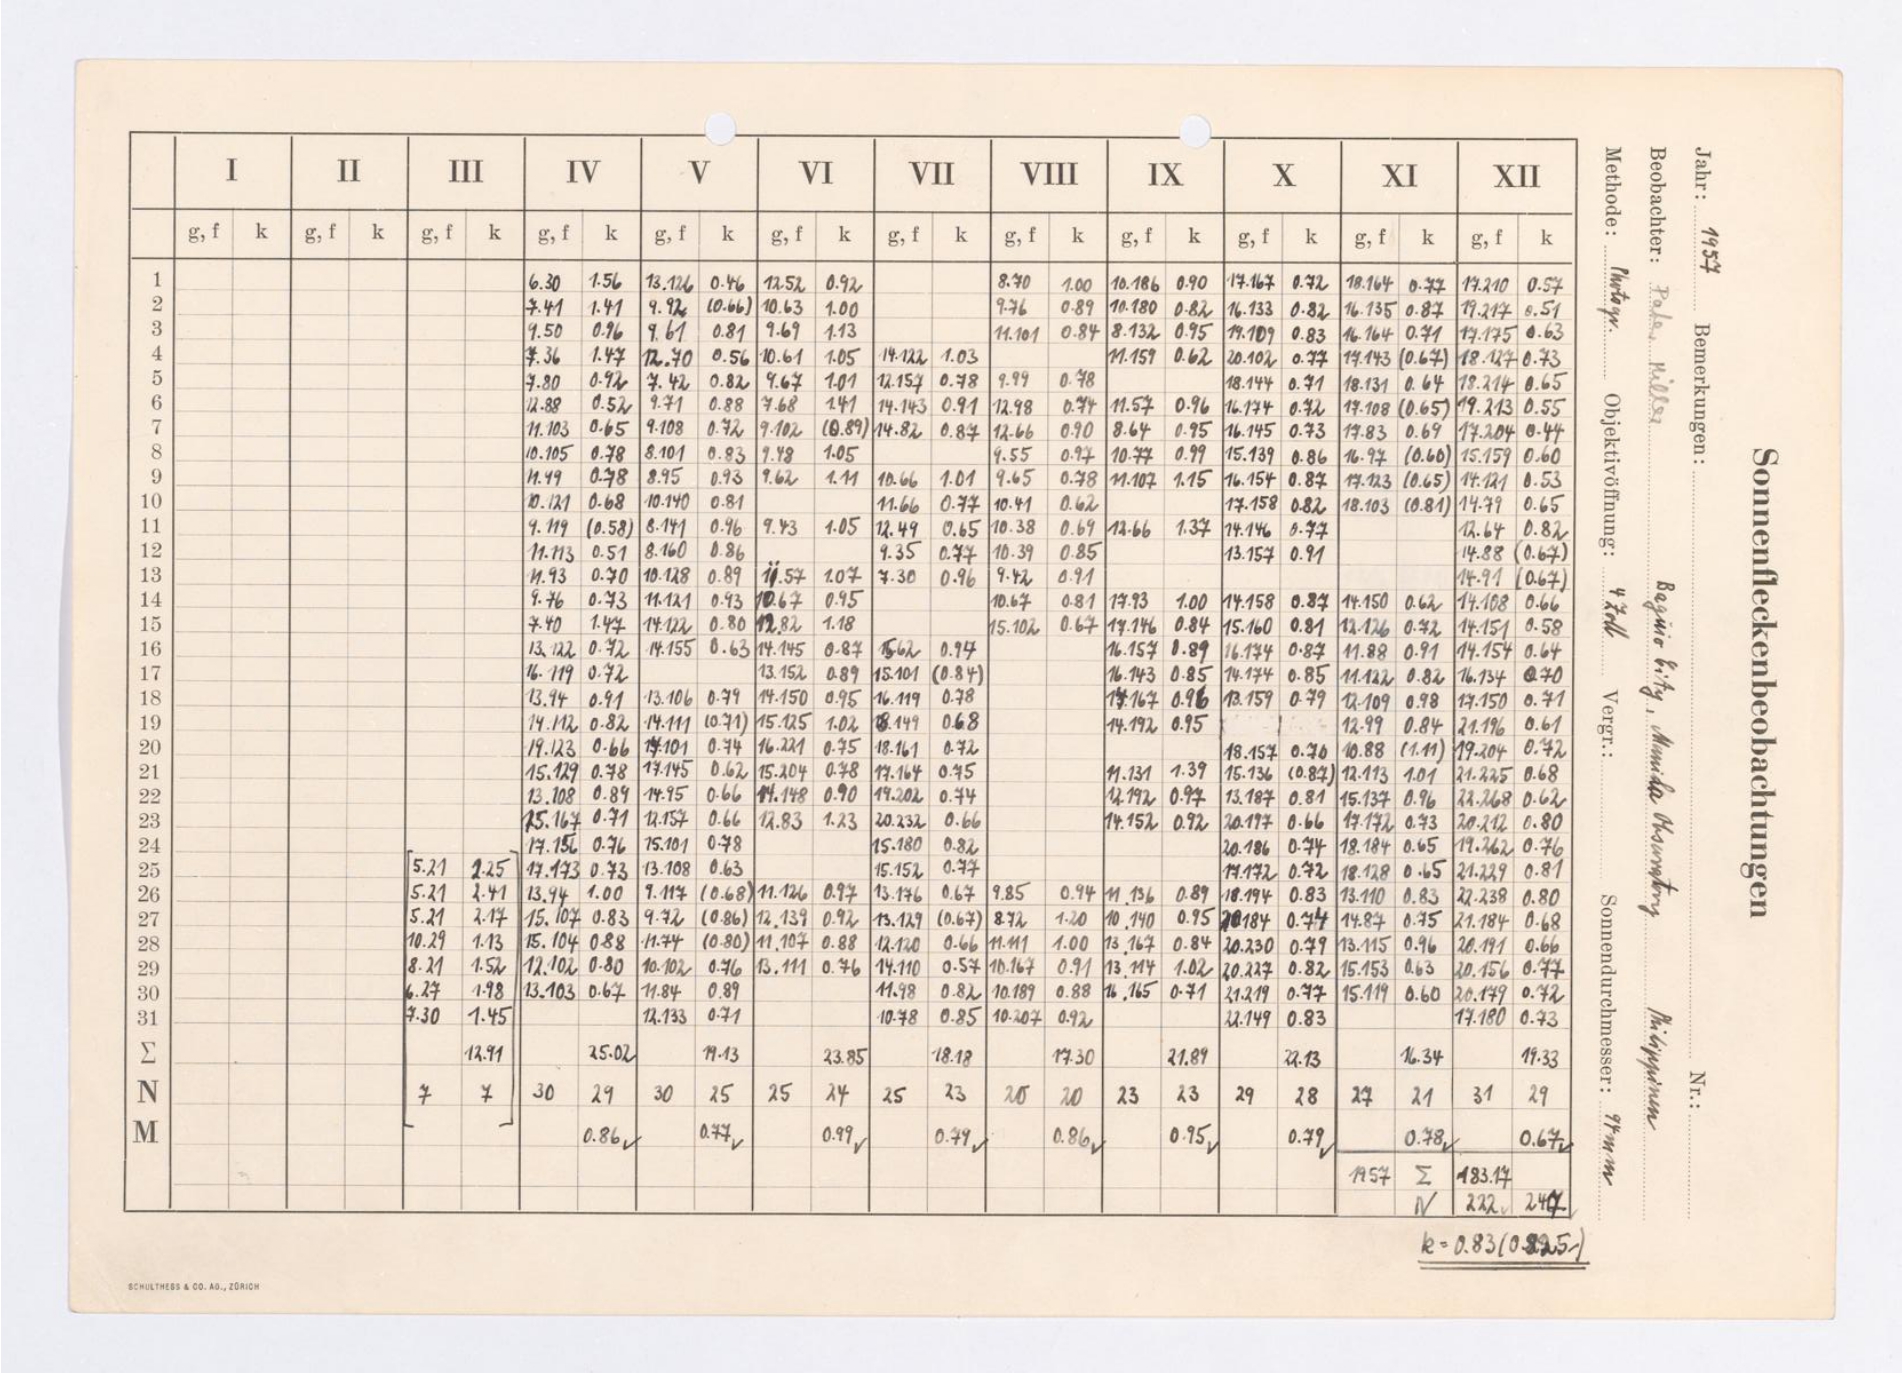 Sonnenfleckenbeobachtungen
Jahr: 1957 Bemerkungen: Nr.:
Beobachter: Pater Miller Baguio City, Manila Observatory Philippinen
Methode: Photogr. Objektivöffnung: 4 Zoll Vergr.: Sonnendurchmesser: 94mm
I II III IV V VI VII VIII IX X XI XII
g, f k g, f k g, f k g, f k g, f k g, f k g, f k g, f k g, f k g, f k g, f k g, f k
1 6.30 1.56 13.126 0.46 12.52 0.92 8.70 1.00 10.186 0.90 17.167 0.72 18.164 0.77 17.210 0.57
2 7.41 1.41 9.92 (0.66) 10.63 1.00 9.76 0.89 10.180 0.82 16.133 0.82 16.135 0.87 19.217 0.51
3 9.50 0.96 9.61 0.81 9.69 1.13 11.101 0.84 8.132 0.95 19.109 0.83 16.164 0.71 17.175 0.63
4 7.36 1.47 12.70 0.56 10.61 1.05 14.122 1.03 11.159 0.62 20.102 0.77 17.143 (0.67) 18.127 0.73
5 7.80 0.92 7.42 0.82 9.67 1.01 12.157 0.78 9.99 0.78 18.144 0.71 18.131 0.64 18.214 0.65
6 12.88 0.52 9.71 0.88 7.68 1.41 14.143 0.91 12.98 0.74 11.57 0.96 16.174 0.72 17.108 (0.65) 19.213 0.55
7 11.103 0.65 9.108 0.72 9.102 (0.89) 14.82 0.87 12.66 0.90 8.64 0.95 16.145 0.73 17.83 0.69 17.204 0.44
8 10.105 0.78 8.101 0.83 9.48 1.05 9.55 0.97 10.77 0.99 15.139 0.86 16.97 (0.60) 15.159 0.60
9 11.99 0.78 8.95 0.93 9.62 1.11 10.66 1.01 9.65 0.78 11.107 1.15 16.154 0.87 17.123 (0.65) 14.121 0.53
10 10.121 0.68 10.140 0.81 11.66 0.77 10.41 0.62 17.158 0.82 18.103 (0.81) 14.79 0.65
11 9.119 (0.58) 8.141 0.96 9.43 1.05 12.49 0.65 10.38 0.69 12.66 1.37 14.146 0.77 12.64 0.82
12 11.113 0.51 8.160 0.86 9.35 0.77 10.39 0.85 13.157 0.91 14.88 (0.67)
13 11.93 0.70 10.128 0.89 11.57 1.07 7.30 0.96 9.42 0.91 14.91 (0.67)
14 9.76 0.73 11.121 0.93 10.67 0.95 10.67 0.81 17.93 1.00 14.158 0.87 14.150 0.62 14.108 0.66
15 7.40 1.47 14.122 0.80 12.82 1.18 15.102 0.67 17.146 0.84 15.160 0.81 12.126 0.72 14.151 0.58
16 13.122 0.72 14.155 0.63 14.145 0.87 15.62 0.94 16.157 0.89 16.174 0.87 11.88 0.91 14.154 0.64
17 16.119 0.72 13.152 0.89 15.101 (0.84) 16.143 0.85 14.174 0.85 11.122 0.82 16.134 0.70
18 13.94 0.91 13.106 0.79 14.150 0.95 16.119 0.78 14.167 0.96 13.159 0.79 12.109 0.98 17.150 0.71
19 14.112 0.82 14.111 (0.71) 15.125 1.02 18.149 0.68 14.192 0.95 12.99 0.84 21.196 0.61
20 19.123 0.66 17.101 0.74 16.221 0.75 18.161 0.72 18.157 0.70 10.88 (1.11) 19.204 0.72
21 15.129 0.78 17.145 0.62 15.204 0.78 17.164 0.75 11.131 1.39 15.136 (0.87) 12.113 1.01 21.225 0.68
22 13.108 0.89 14.95 0.66 14.148 0.90 19.202 0.74 12.192 0.97 13.187 0.81 15.137 0.96 22.268 0.62
23 15.167 0.71 12.157 0.66 12.83 1.23 20.232 0.66 14.152 0.92 20.197 0.66 17.172 0.73 20.212 0.80
24 17.156 0.76 15.101 0.78 15.180 0.82 20.186 0.74 18.184 0.65 19.262 0.76
25 5.21 2.25 17.173 0.73 13.108 0.63 15.152 0.77 17.172 0.72 18.128 0.65 21.229 0.81
26 5.21 2.41 13.94 1.00 9.117 (0.68) 11.126 0.97 13.176 0.67 9.85 0.94 11.136 0.89 18.194 0.83 13.110 0.83 22.238 0.80
27 5.21 2.17 15.107 0.83 9.72 (0.86) 12.139 0.92 13.129 (0.67) 8.72 1.20 10.140 0.95 20.184 0.74 14.87 0.75 21.184 0.68
28 10.29 1.13 15.104 0.88 11.74 (0.80) 11.107 0.88 12.120 0.66 11.111 1.00 13.167 0.84 20.230 0.79 13.115 0.96 20.191 0.66
29 8.21 1.52 12.102 0.80 10.102 0.76 13.111 0.76 14.110 0.57 10.167 0.91 13.114 1.02 20.227 0.82 15.153 0.63 20.156 0.77
30 6.27 1.98 13.103 0.67 11.84 0.89 11.98 0.82 10.189 0.88 16.165 0.71 21.219 0.77 15.119 0.60 20.179 0.72
31 7.30 1.45 12.133 0.71 10.78 0.85 10.207 0.92 22.149 0.83 17.180 0.73
Σ 12.91 25.02 19.13 23.85 18.18 17.30 21.89 22.13 16.34 19.33
N 7 7 30 29 30 25 25 24 25 23 20 20 23 23 29 28 27 21 31 29
M 0.86 0.77 0.99 0.79 0.86 0.95 0.79 0.78 0.67
1957 Σ 183.17
N 222 247
k = 0.83 (0.825)
SCHULTHESS & CO. AG., ZÜRICH